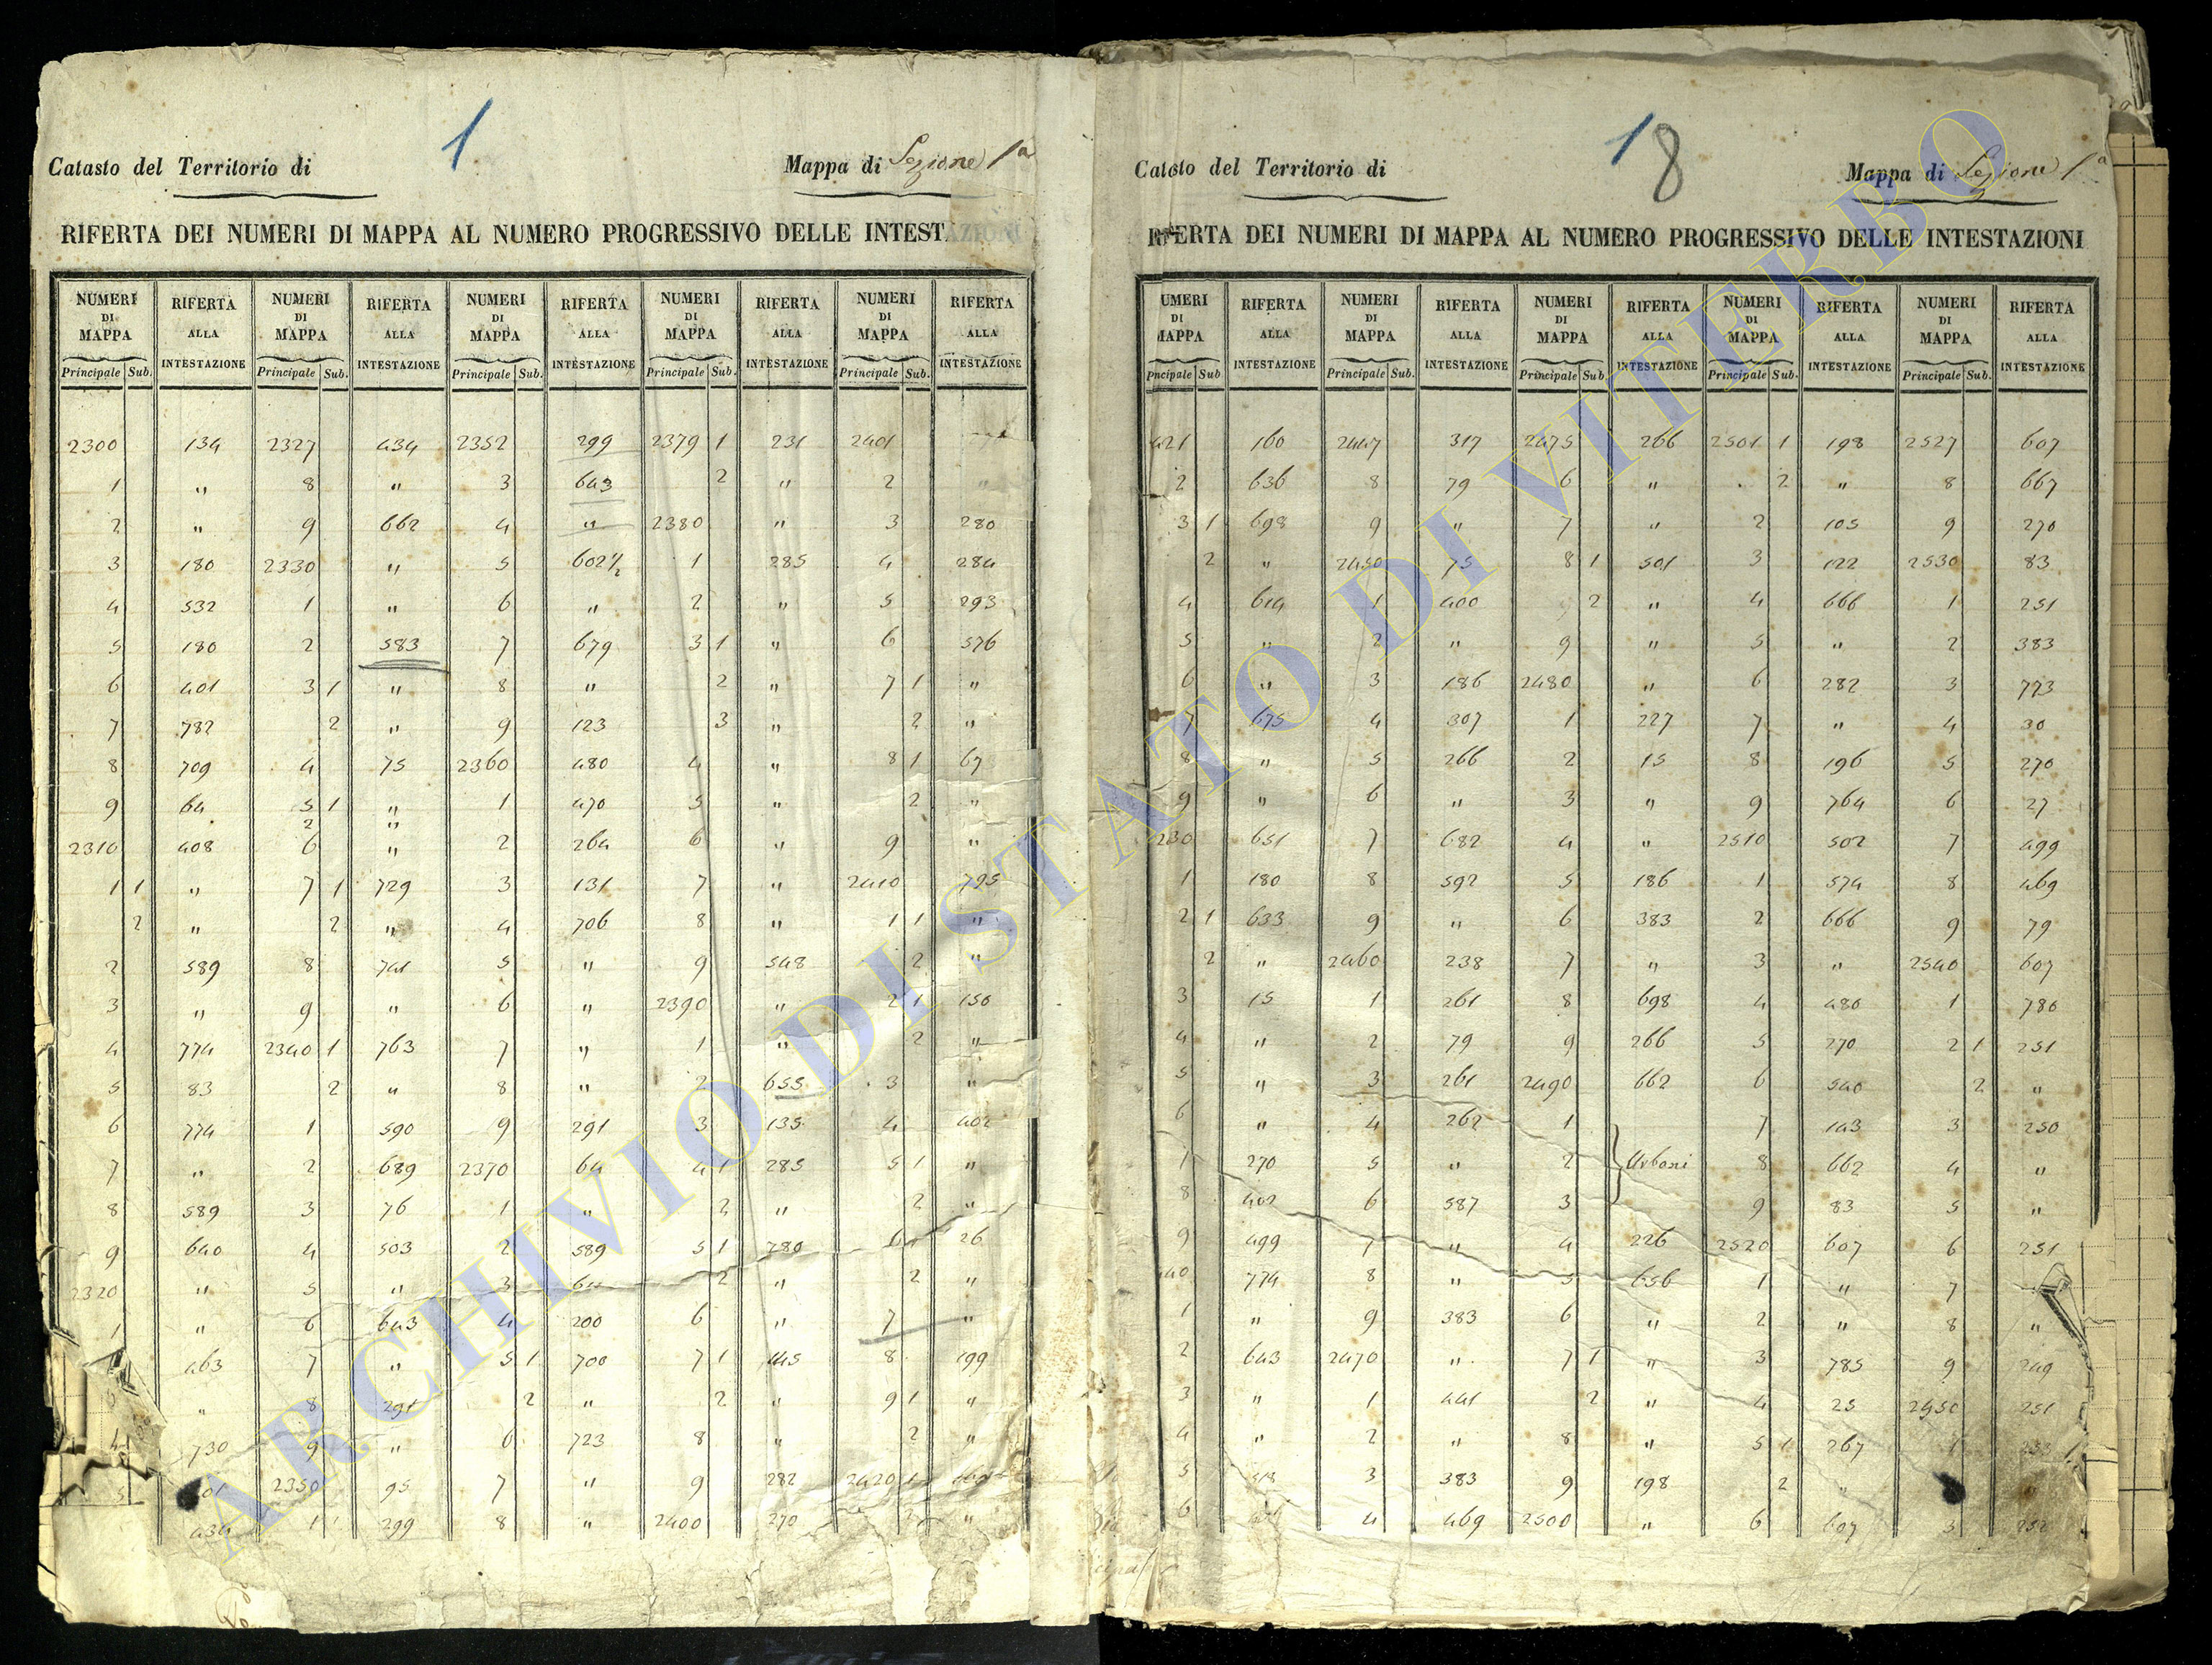 1
Catasto del Territorio di
Mappa di Sezione 1a
RIFERTA DEI NUMERI DI MAPPA AL NUMERO PROGRESSIVO DELLE INTESTAZIONI
NUMERI RIFERTA NUMERI RIFERTA NUMERI RIFERTA NUMERI RIFERTA NUMERI RIFERTA
DI ALLA DI ALLA DI ALLA DI ALLA DI ALLA
MAPPA INTESTAZIONE MAPPA INTESTAZIONE MAPPA INTESTAZIONE MAPPA INTESTAZIONE MAPPA INTESTAZIONE
Principale Sub. Principale Sub. Principale Sub. Principale Sub. Principale Sub.
2300 134 2327 434 2352 299 2379 1 231 2401
1 " 8 " 3 643 2 " 2 "
2 " 9 662 4 " 2380 " 3 280
3 180 2330 " 5 602 1/2 1 285 4 284
4 532 1 " 6 " 2 " 5 293
5 180 2 583 7 679 3 1 " 6 576
6 401 3 1 " 8 " 2 " 7 1 "
7 782 2 " 9 123 3 " 2 "
8 709 4 75 2360 480 4 " 8 1 67
9 64 5 1 " 1 470 5 " 2 "
2 "
2310 408 6 " 2 264 6 " 9 "
1 1 " 7 1 729 3 131 7 " 2410 795
2 " 2 " 4 706 8 " 1 1 "
2 589 8 741 5 " 9 548 2 "
3 " 9 " 6 " 2390 " 2 1 150
4 774 2340 1 763 7 " 1 " 2 "
5 83 2 " 8 " 2 655 3 "
6 774 1 590 9 291 3 135 4 402
7 " 2 689 2370 64 4 1 285 5 1 "
8 589 3 76 1 " 2 " 2 "
9 640 4 503 2 589 5 1 780 6 1 26
2320 " 5 " 3 64 2 " 2 "
1 " 6 643 4 200 6 " 7 "
463 7 " 5 1 700 7 1 445 8 199
" 8 291 2 " 2 " 9 1 "
4 730 9 " 6 723 8 " 2 "
5 2350 95 7 " 9 282 2420 1
434 1 1 299 8 " 2400 270 2 "
18
Catasto del Territorio di
Mappa di Sezione 1a
RIFERTA DEI NUMERI DI MAPPA AL NUMERO PROGRESSIVO DELLE INTESTAZIONI
UMERI RIFERTA NUMERI RIFERTA NUMERI RIFERTA NUMERI RIFERTA NUMERI RIFERTA
DI ALLA DI ALLA DI ALLA DI ALLA DI ALLA
MAPPA INTESTAZIONE MAPPA INTESTAZIONE MAPPA INTESTAZIONE MAPPA INTESTAZIONE MAPPA INTESTAZIONE
Pncipale Sub Principale Sub. Principale Sub. Principale Sub. Principale Sub.
421 160 2447 317 2475 266 2501 1 198 2527 607
2 636 8 79 6 " 2 " 8 667
3 1 698 9 " 7 " 2 105 9 270
2 " 2450 75 8 1 501 3 122 2530 83
4 614 1 400 2 " 4 666 1 251
5 " 2 " 9 " 5 " 2 383
6 " 3 186 2480 " 6 282 3 773
7 675 4 307 1 227 7 " 4 30
8 " 5 266 2 15 8 196 5 270
9 " 6 " 3 " 9 764 6 27
230 651 7 682 4 " 2510 502 7 499
1 180 8 592 5 186 1 574 8 469
2 1 633 9 " 6 383 2 666 9 79
2 " 2460 238 7 " 3 " 2540 607
3 15 1 261 8 698 4 480 1 780
4 " 2 79 9 266 5 270 2 1 251
5 " 3 261 2490 662 6 540 2 "
6 " 4 262 1 7 143 3 250
7 270 5 " 2 Urbani 8 662 4 "
8 402 6 587 3 9 83 5 "
9 499 7 " 4 226 2520 607 6 251
40 774 8 " 5 656 1 " 7
1 " 9 383 6 " 2 " 8 "
2 643 2470 " 7 1 " 3 785 9 249
3 " 1 441 2 " 4 25 2550 251
4 " 2 " 8 " 5 1 267 1
5 3 383 9 198 2 "
6 4 469 2500 " 6 607 3 252
ARCHIVIO DI STATO DI VITERBO